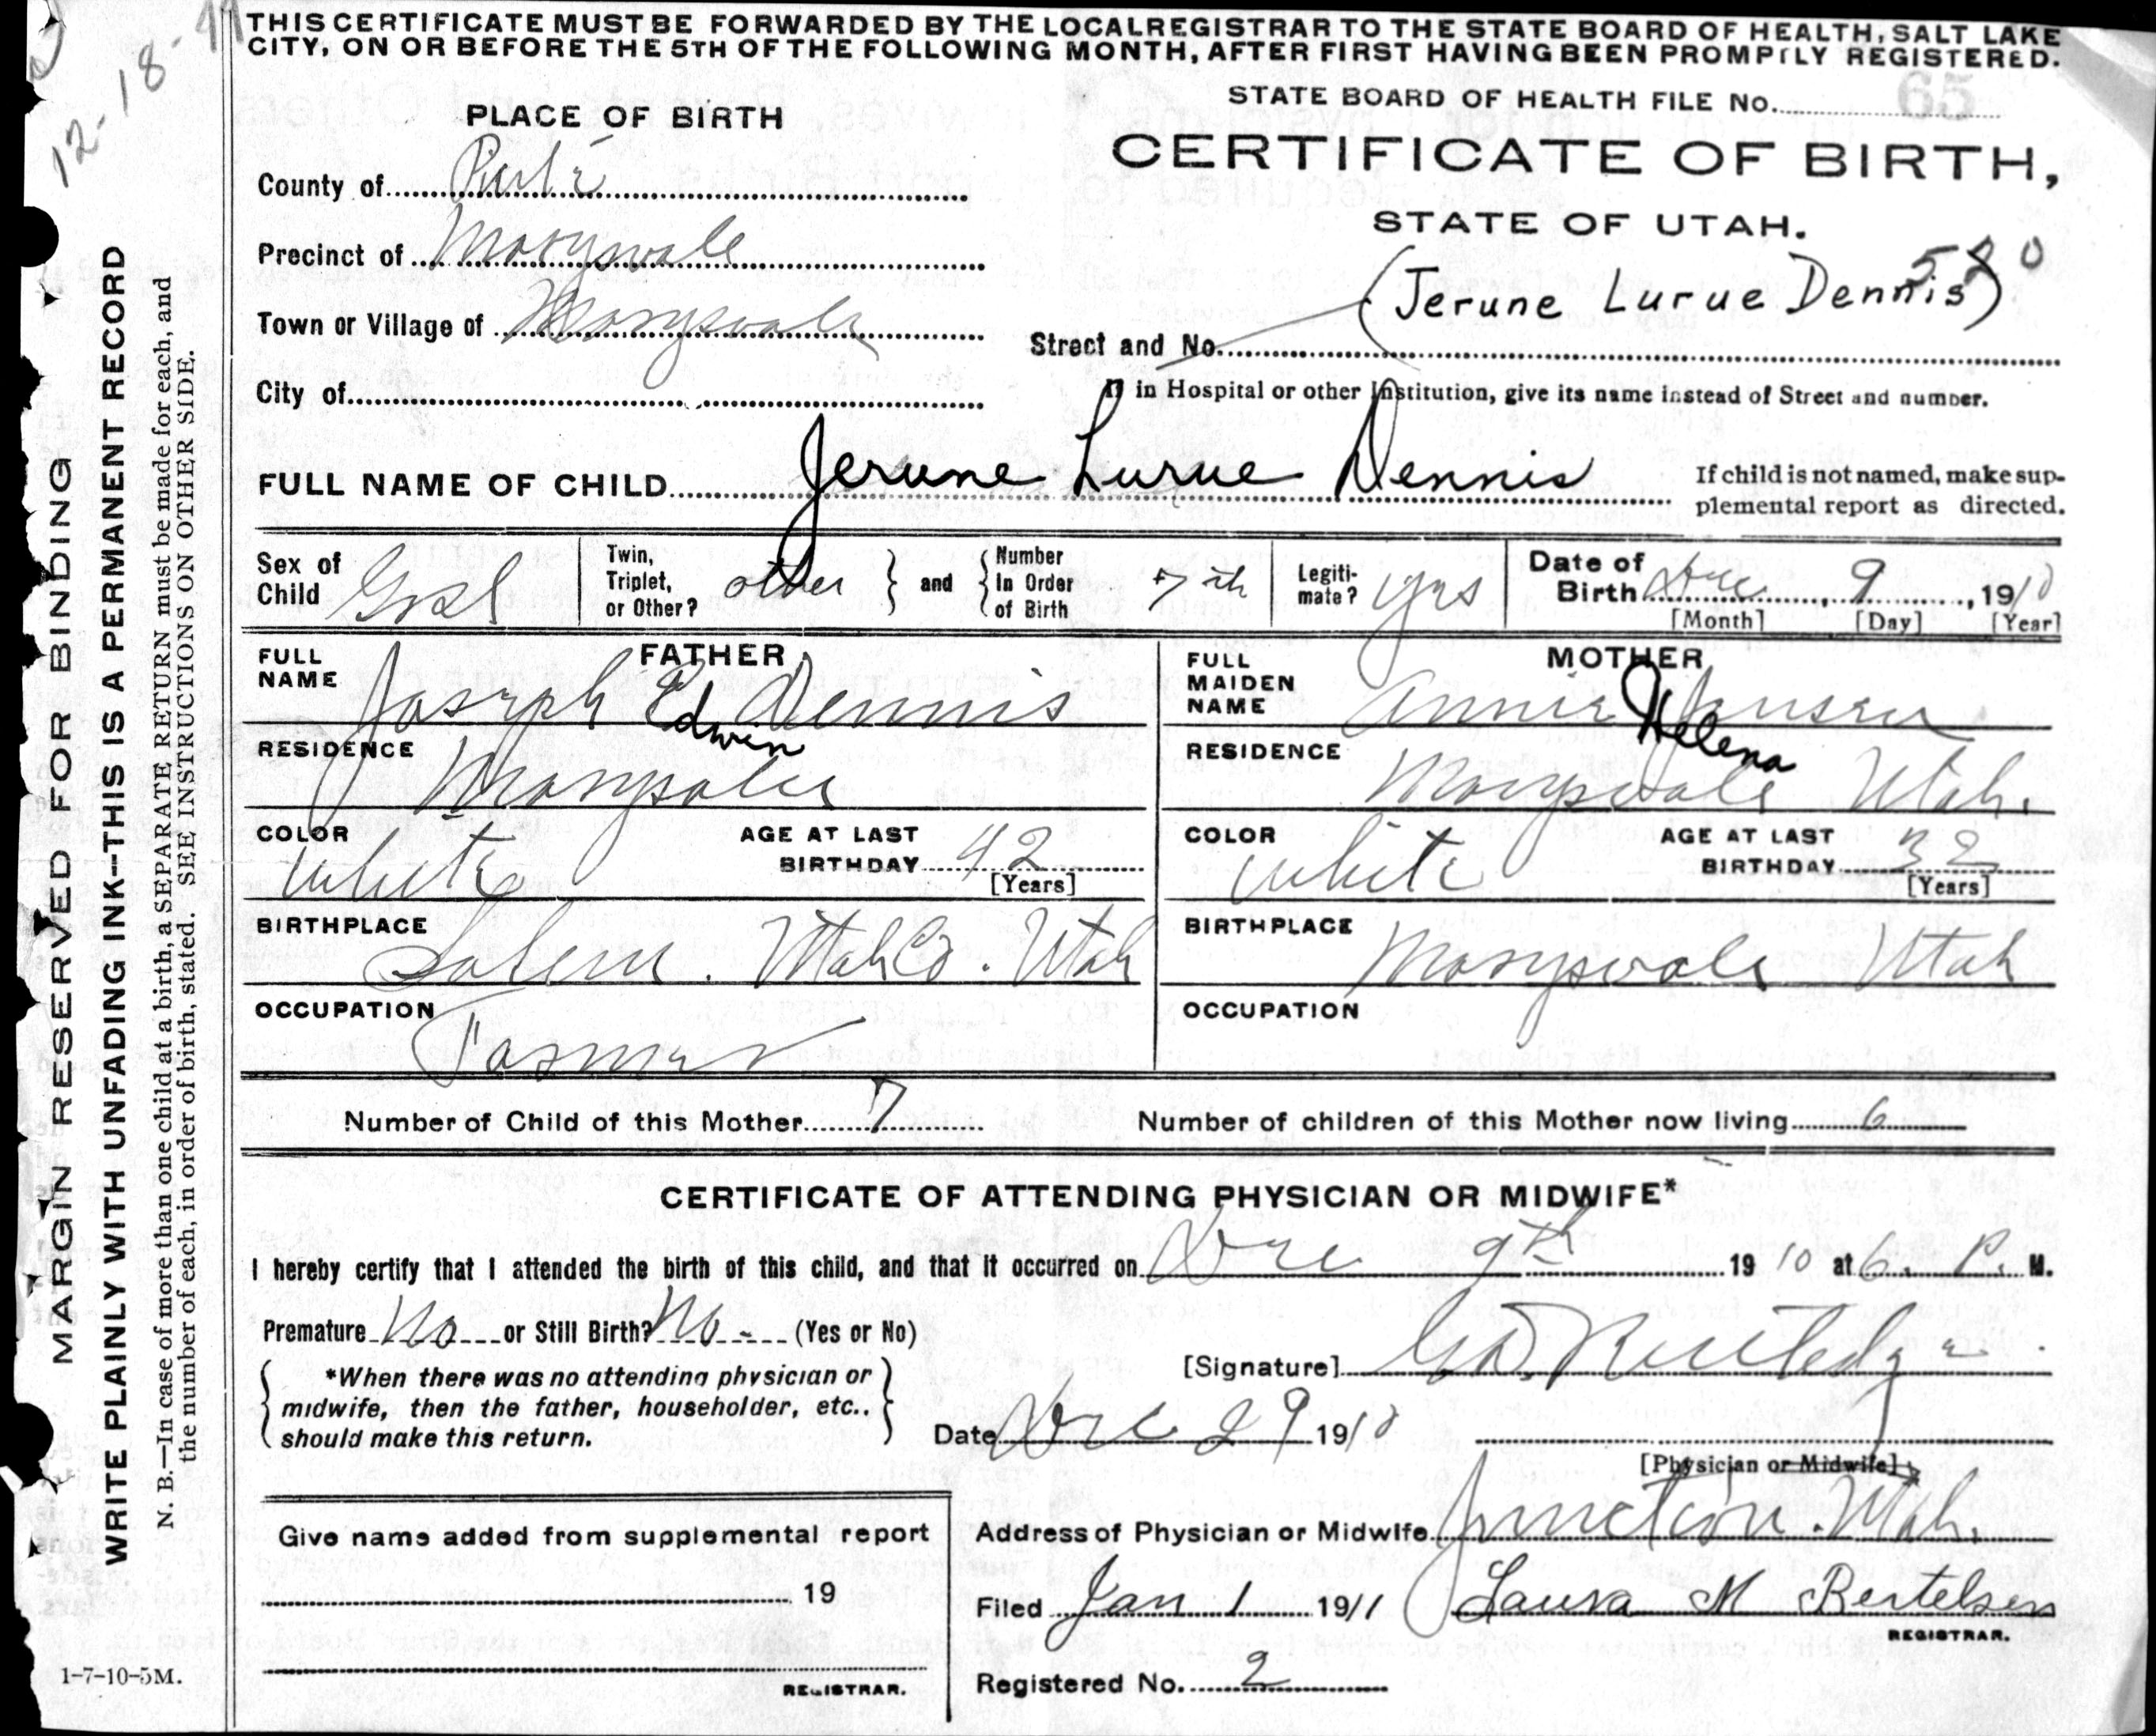 12-18-41
THIS CERTIFICATE MUST BE FORWARDED BY THE LOCAL REGISTRAR TO THE STATE BOARD OF HEALTH, SALT LAKE
CITY, ON OR BEFORE THE 5TH OF THE FOLLOWING MONTH, AFTER FIRST HAVING BEEN PROMPTLY REGISTERED.
STATE BOARD OF HEALTH FILE No. 65
PLACE OF BIRTH
CERTIFICATE OF BIRTH,
STATE OF UTAH.
County of Piute
Precinct of Marysvale
520
(Jerune Lurue Dennis)
Town or Village of Marysvale
Street and No.
City of
If in Hospital or other Institution, give its name instead of Street and number.
FULL NAME OF CHILD Jerune Lurue Dennis
If child is not named, make sup-
plemental report as directed.
Sex of Child Girl
Twin, Triplet, or Other? other } and { Number In Order of Birth 7th
Legiti-mate? yes
Date of Birth Dec 9, 1910
[Month] [Day] [Year]
FATHER
FULL NAME Joseph E Dennis
Edwin
RESIDENCE Marysvale
COLOR White
AGE AT LAST BIRTHDAY 42
[Years]
BIRTHPLACE Salem. Utah Co. Utah
OCCUPATION Farmer
MOTHER
FULL MAIDEN NAME Annie Jensen
Helena
RESIDENCE Marysvale Utah.
COLOR White
AGE AT LAST BIRTHDAY 32
[Years]
BIRTHPLACE Marysvale Utah
OCCUPATION
Number of Child of this Mother 7
Number of children of this Mother now living 6
CERTIFICATE OF ATTENDING PHYSICIAN OR MIDWIFE*
I hereby certify that I attended the birth of this child, and that it occurred on Dec 9th 1910 at 6. P. M.
Premature No or Still Birth? No - (Yes or No)
[Signature] Rutledge
*When there was no attending physician or
midwife, then the father, householder, etc.,
should make this return.
Date Dec 29 1910
[Physician or Midwife]
Address of Physician or Midwife Junction. Utah.
Give name added from supplemental report
19
REGISTRAR.
Filed Jan 1 1911 Laura M Bertelsen
REGISTRAR.
Registered No. 2
1-7-10-5M.
MARGIN RESERVED FOR BINDING
WRITE PLAINLY WITH UNFADING INK—THIS IS A PERMANENT RECORD
N. B.—In case of more than one child at a birth, a SEPARATE RETURN must be made for each, and
the number of each, in order of birth, stated. SEE INSTRUCTIONS ON OTHER SIDE.